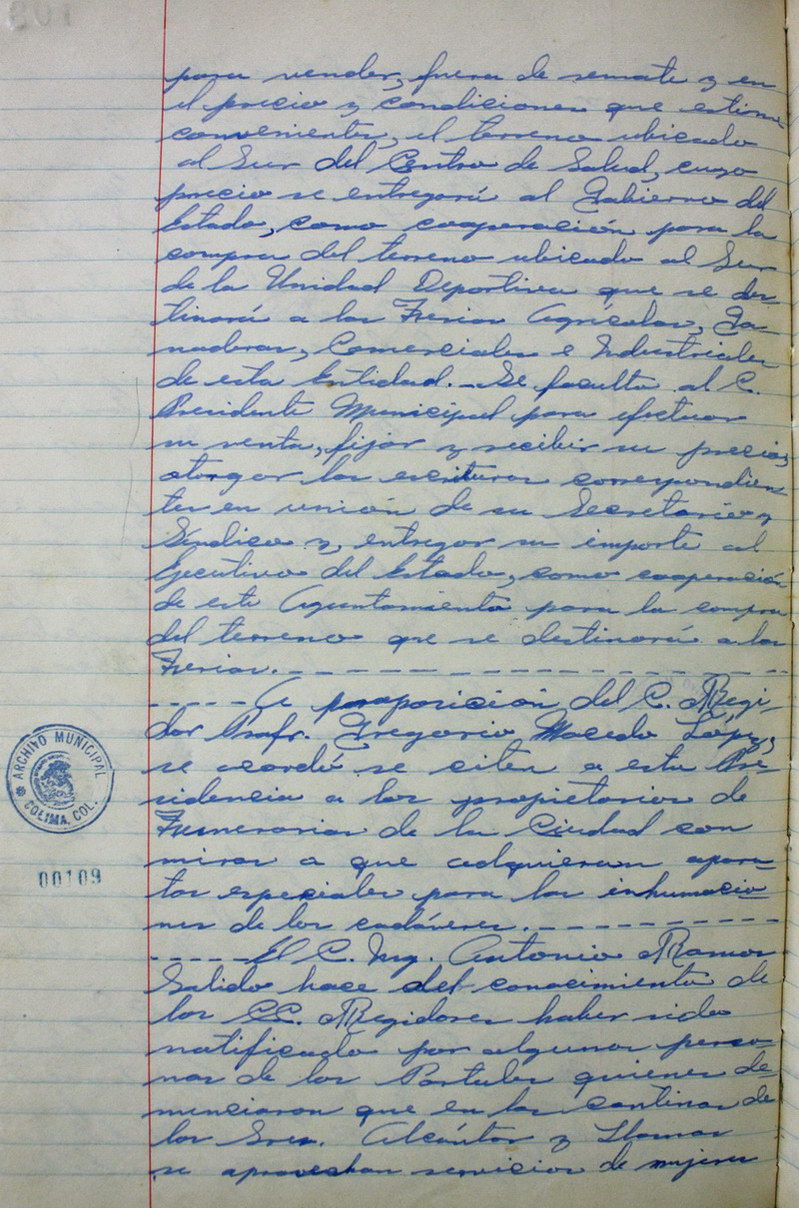 para vender, fuera de remate y en
el precio y condiciones que estime
convenientes, el terreno ubicado
al Sur del Centro de Salud, cuyo
precio se entregará al Gobierno del
Estado, como cooperación para la
compra del terreno ubicado al Sur
de la Unidad Deportiva que se des-
tinará a las Ferias Agrícolas, Ga-
naderas, Comerciales e Industriales
de esta Entidad. - Se faculta al C.
Presidente Municipal para efectuar
su venta, fijar y recibir su precio,
otorgar las escrituras correspondien-
tes en unión de su Secretario y
Síndico y, entregar su importe al
Ejecutivo del Estado, como cooperación
de este Ayuntamiento para la compra
del terreno que se destinará a las
Ferias. - - - - - - - - - - - - - -
- - - - A proposición del C. Regi-
dor Profr. Gregorio Macedo López,
se acordó se citen a esta Pre-
sidencia a los propietarios de
Funerarias de la Ciudad con
miras a que adquieran apara-
tos especiales para las inhumacio-
nes de los cadáveres. - - - - - - - - -
- - - - El C. Ing. Antonio Ramos
Salido hace del conocimiento de
los CC. Regidores haber sido
notificado por algunas perso-
nas de los Portales quienes de-
nunciaron que en las cantinas de
los Sres. Alcántar y Llamas
se aprovechan servicios de mujeres
ARCHIVO MUNICIPAL
COLIMA, COL.
00109